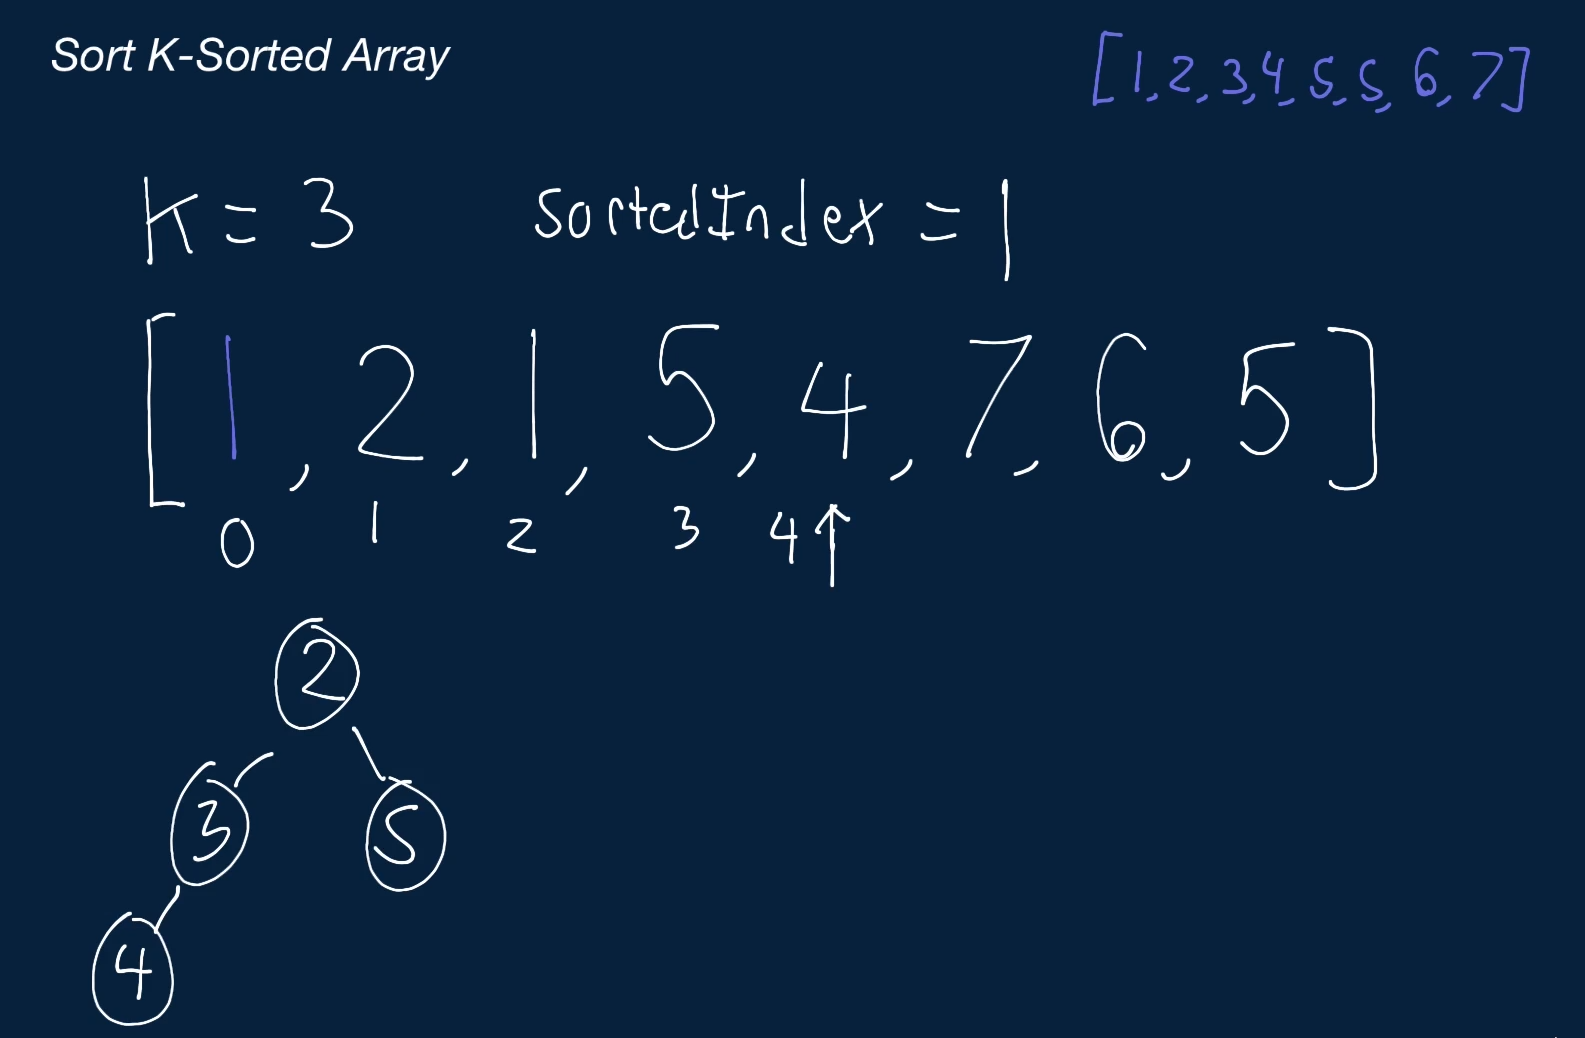 Sort K-Sorted Array
[1,2,3,4,5,5,6,7]
K=3 sortedIndex=1
[1,2,1,5,4,7,6,5]
0 1 2 3 4↑
2
3 5
4